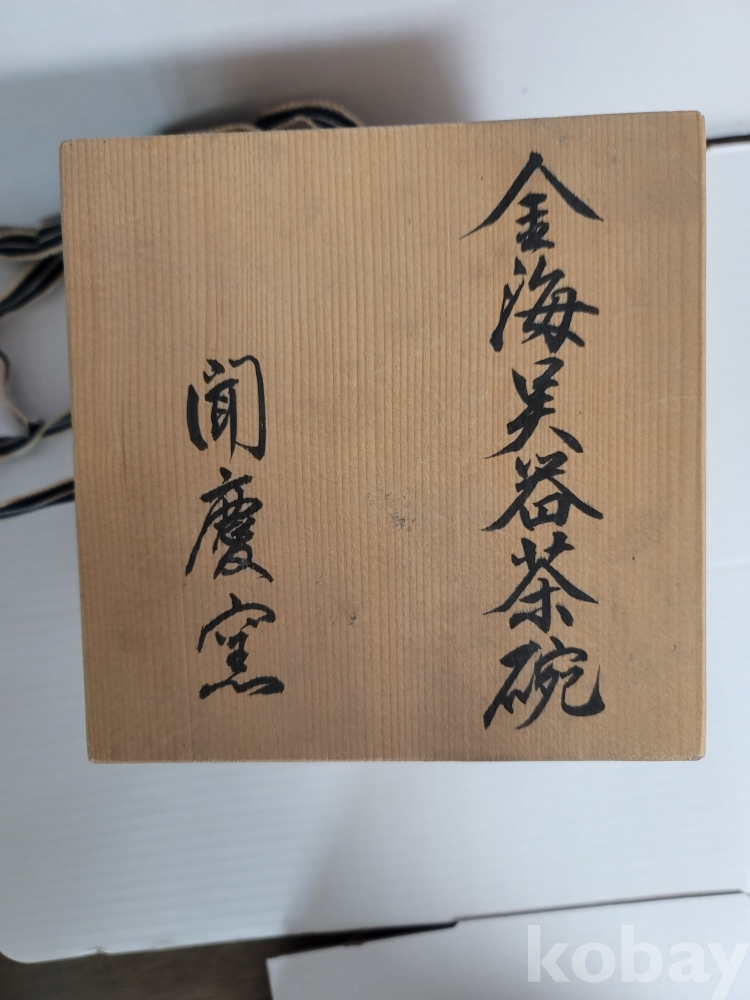 金海吴器茶碗
聞慶窯
kobay